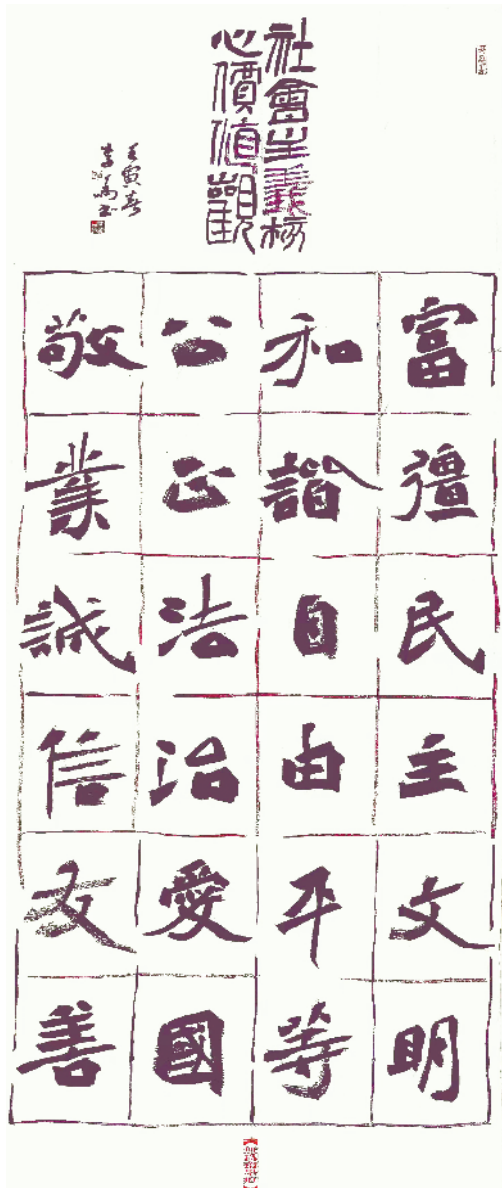 社會主義核
心價值觀
富彊民主文明
和諧自由平等
公正法治愛國
敬業誠信友善
壬寅春